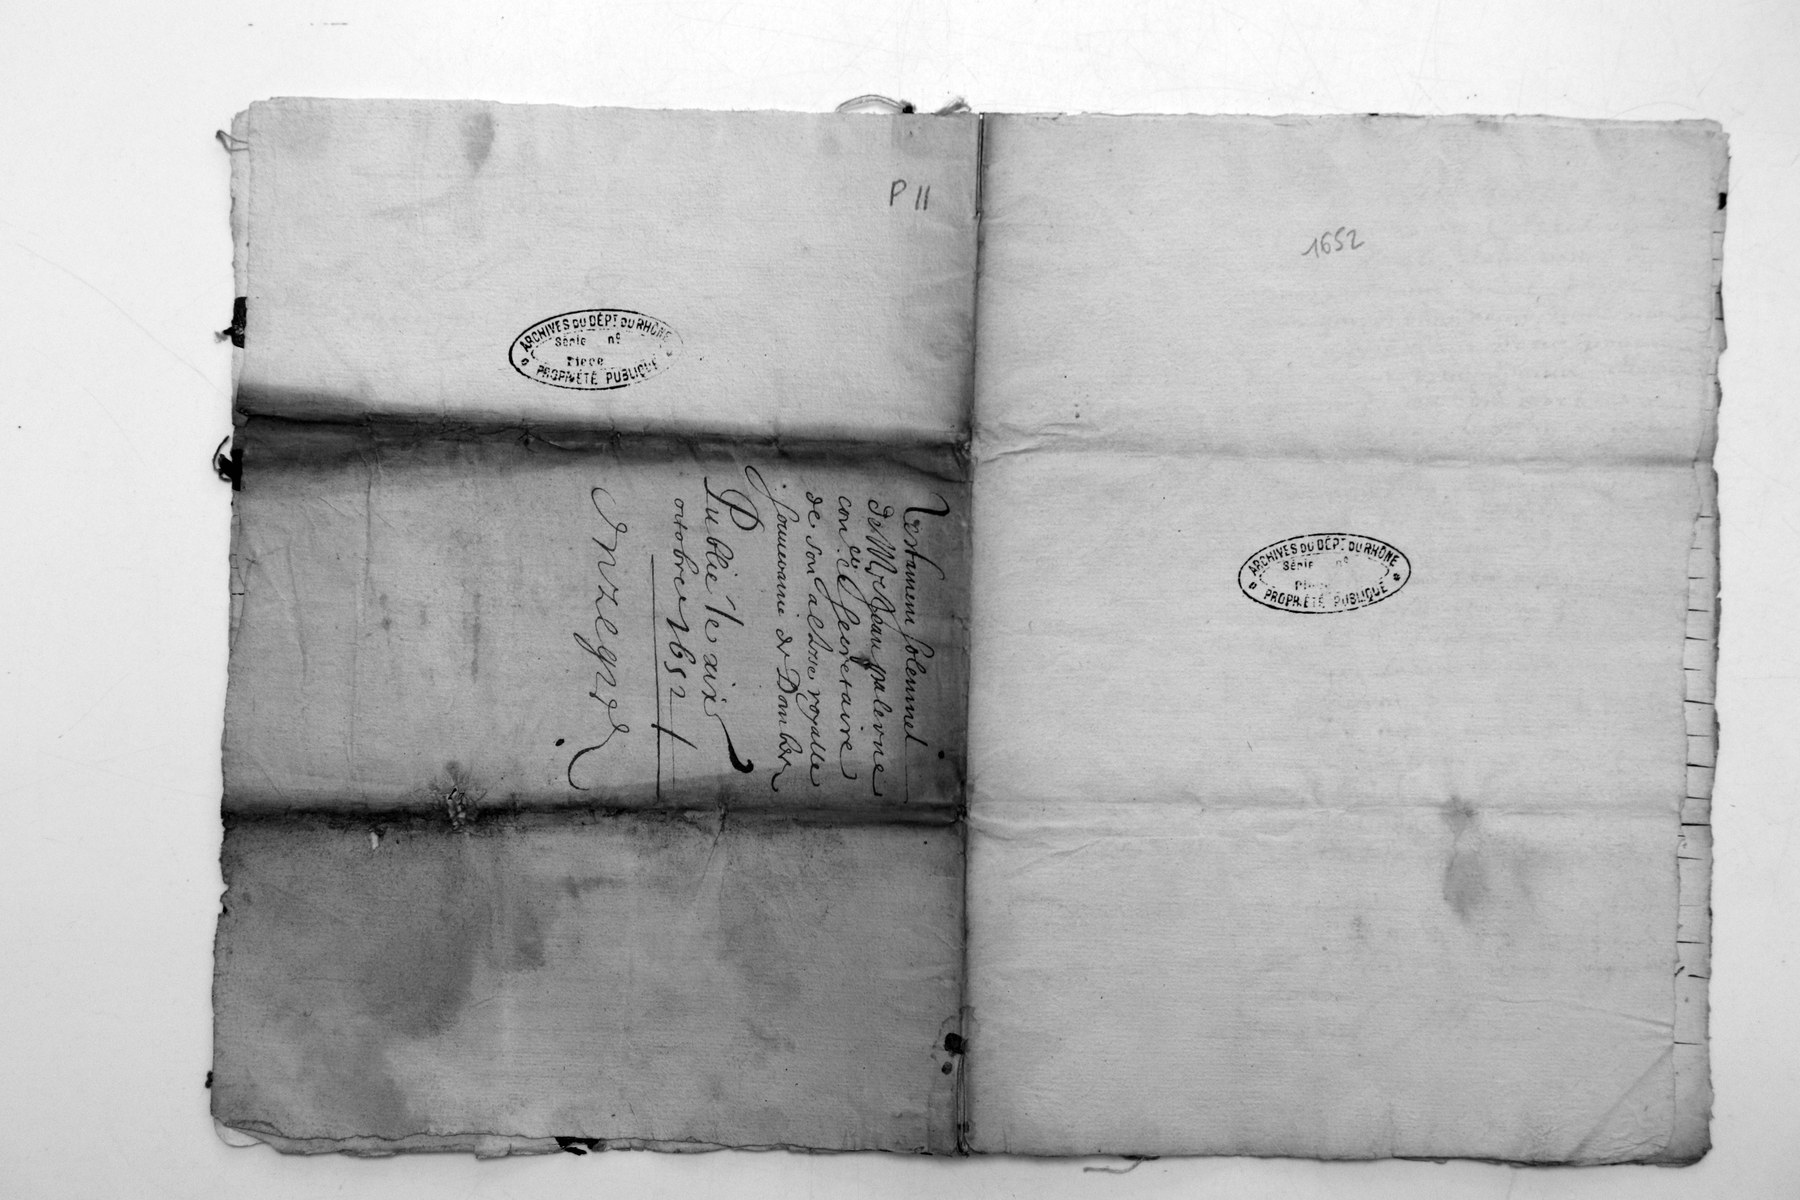 P 11
ARCHIVES DU DÉPT DU RHÔNE
Série nº
Pièce
PROPRIÉTÉ PUBLIQUE
Testament solennel
de Mre Jean palerne
coner & secretaire
de son altesse royalle
souveraine de Dombes
Publié le xix
octobre 1652
1652
ARCHIVES DU DÉPT DU RHÔNE
Série nº
Pièce
PROPRIÉTÉ PUBLIQUE